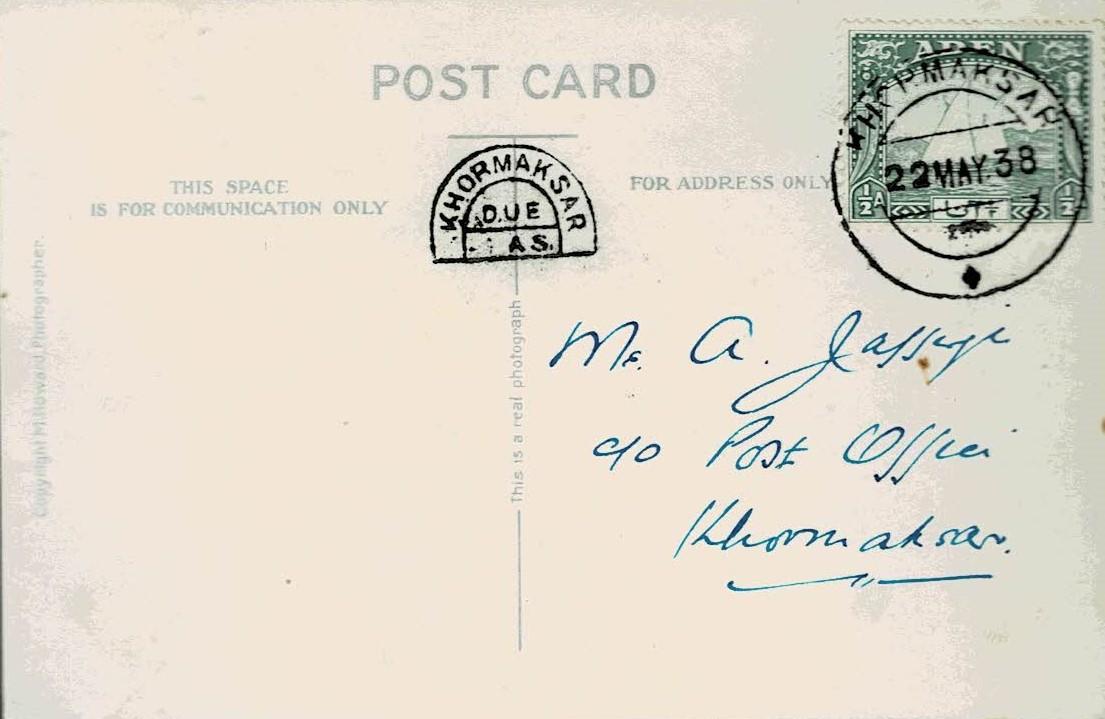 POST CARD
ADEN
KHORMAKSAR
22 MAY. 38
½ A
½
THIS SPACE
IS FOR COMMUNICATION ONLY
KHORMAKSAR
DUE
AS.
FOR ADDRESS ONLY
Copyright M. Howard Photographer.
This is a real photograph
Mr. A.
c/o Post Office
Khormaksar.